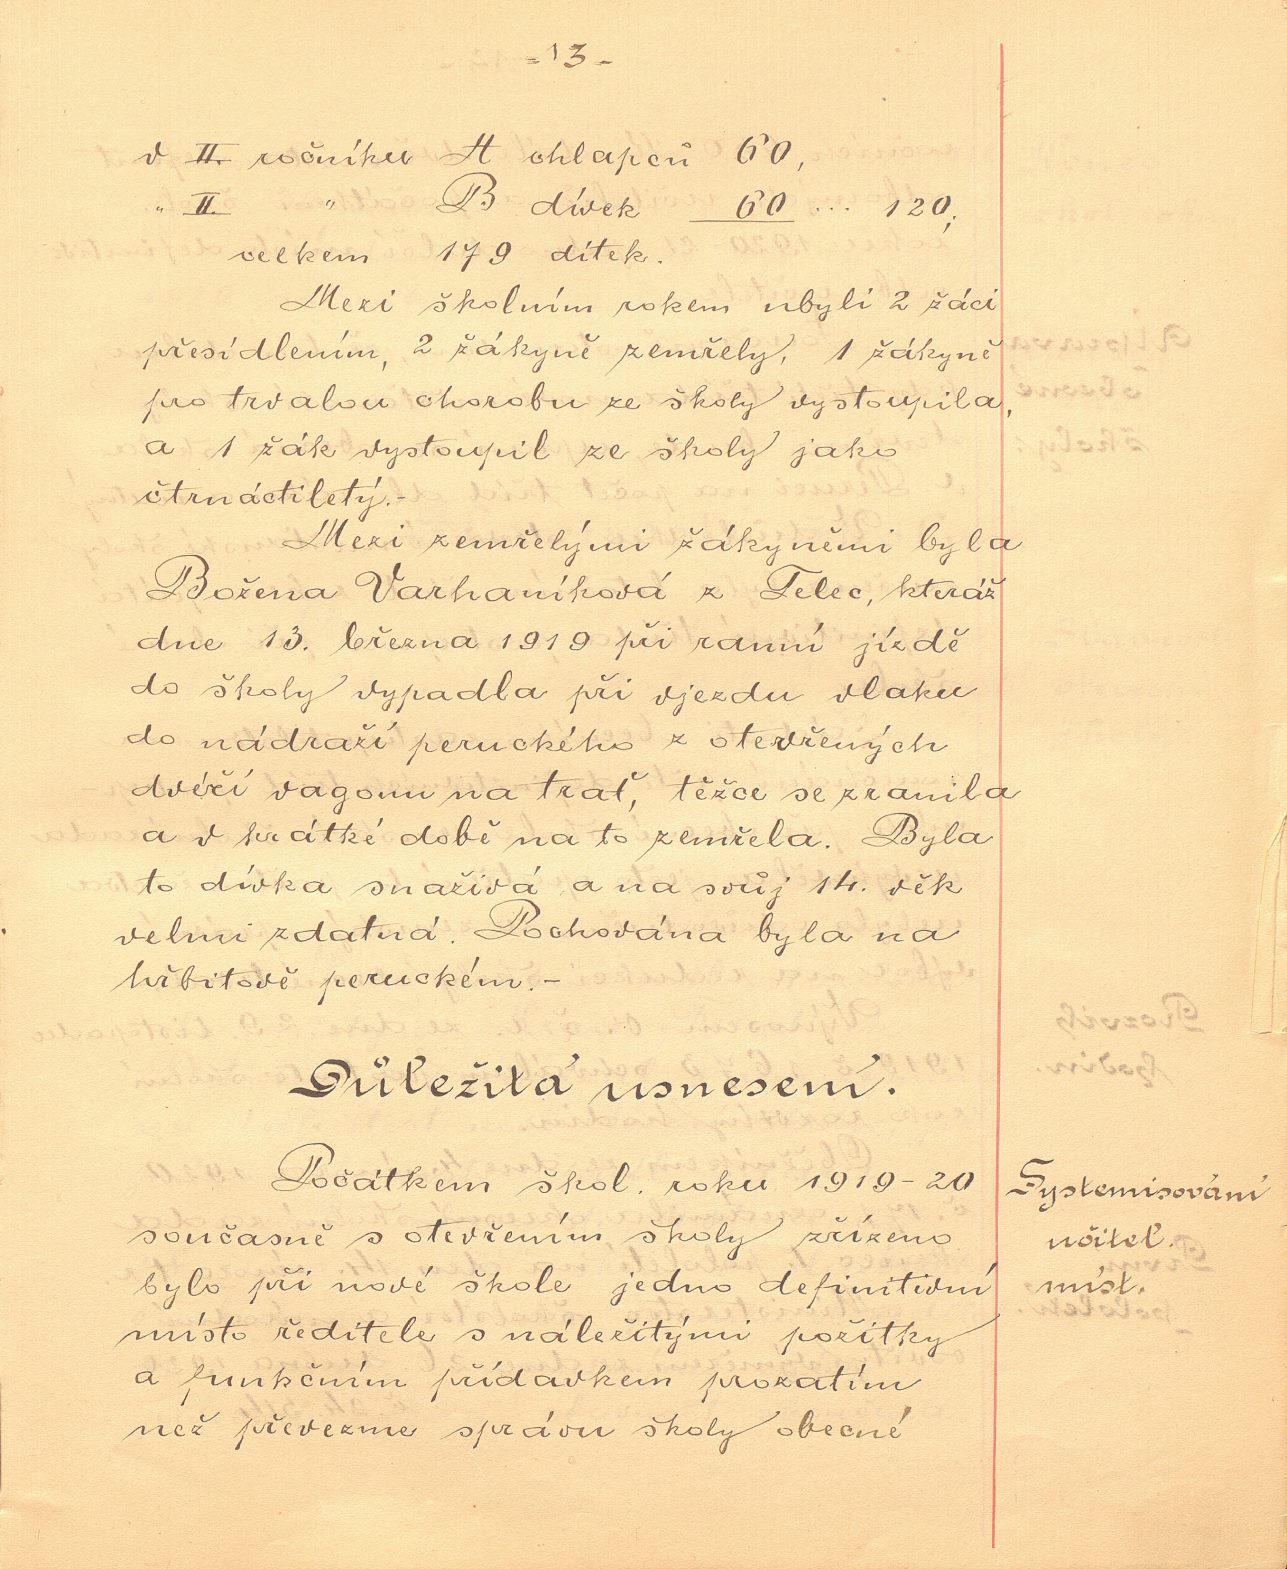 -13-
v II. ročníku A chlapců 60,
„ II. „ B dívek 60 ... 120;
celkem 179 dítek.
Mezi školním rokem ubyli 2 žáci
přesídlením, 2 žákyně zemřely, 1 žákyně
pro trvalou chorobu ze školy vystoupila,
a 1 žák vystoupil ze školy jako
čtrnáctiletý.-
Mezi zemřelými žákyněmi byla
Božena Varhaníková z Telec, kteráž
dne 13. března 1919 při ranní jízdě
do školy vypadla při vjezdu vlaku
do nádraží peruckého z otevřených
dvéří vagonu na trať, těžce se zranila
a v krátké době na to zemřela. Byla
to dívka snaživá a na svůj 14. věk
velmi zdatná. Pochována byla na
hřbitově peruckém.-
Důležitá usnesení.
Počátkem škol. roku 1919-20
současně s otevřením školy zřízeno
bylo při nové škole jedno definitivní
místo ředitele s náležitými požitky
a funkčním přídavkem prozatím
než převezme správu školy obecné
Systemisování
učitel.
míst.